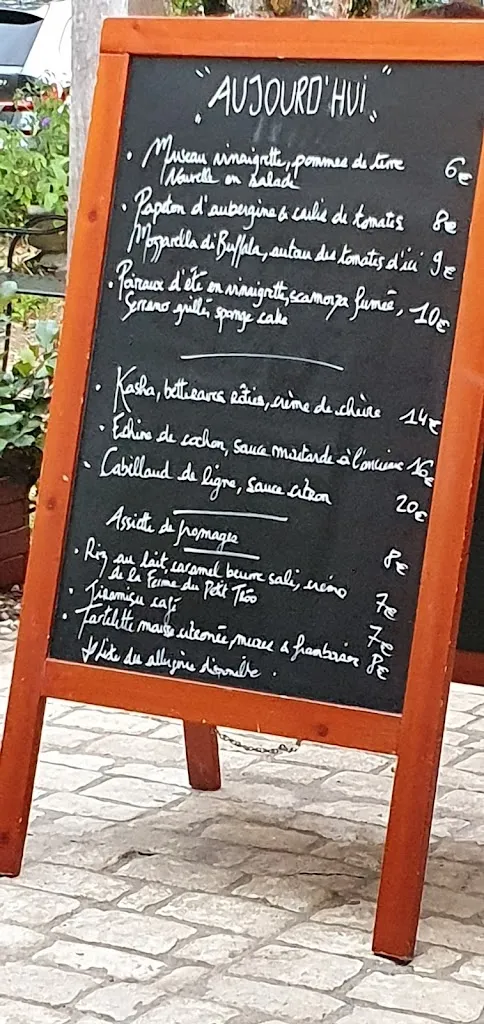 "AUJOURD'HUI"
• Museau vinaigrette, pommes de terre 6€
Nouvelle en salade
• Papeton d'aubergine & coulis de tomates 8€
Mozzarella di Buffala, autour des tomates d'ici 9€
• Poireaux d'été en vinaigrette, scamorza fumée, 10€
Serrano grillé, sponge cake
• Kasha, betteraves rôties, crème de chèvre 14€
• Echine de cochon, sauce moutarde à l'ancienne 16€
• Cabillaud de ligne, sauce citron 20€
Assiette de fromages 8€
• Riz au lait, caramel beurre salé, crémo 7€
de la Ferme du Petit
• Tiramisu café 7€
• Tartelette mousse citronée, mures & framboises 8€
liste des allergènes disponible.